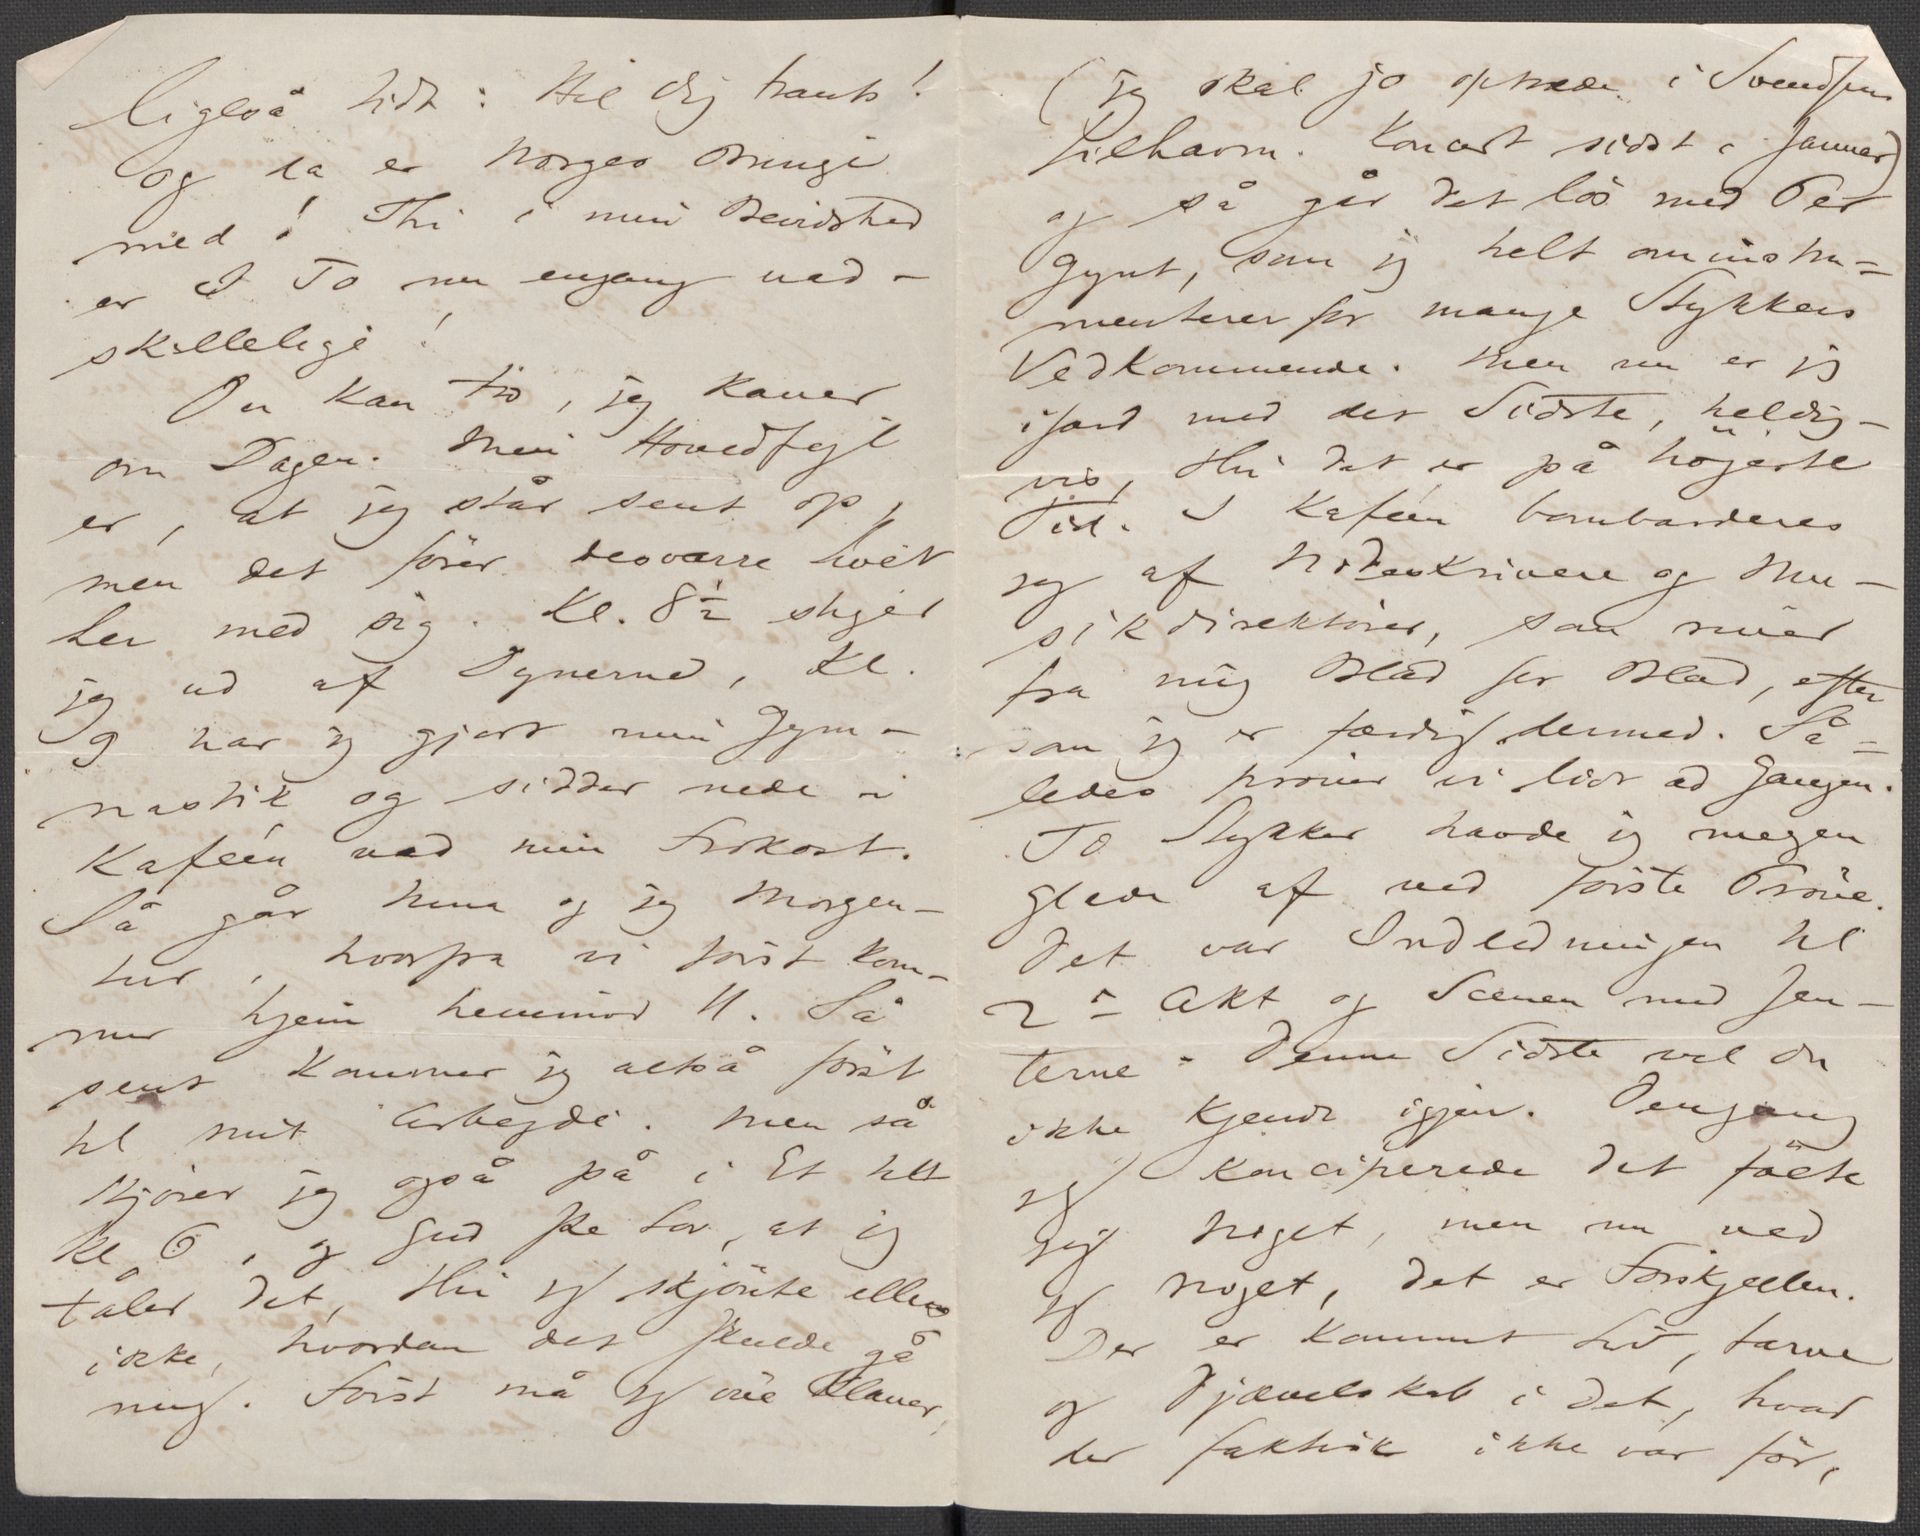 ligeså tidt: Hil dig Frants!
og da er Norges Bringe
med! Thi i min Bevidsthed
er I To nu engang uad-
skillelige!
Du kan tro, jeg kaver
om Dagen. Min Hovedfejl
er, at jeg står sent op,
men det fører desværre
her med sig. Kl. 8½ stiger
jeg ud af Dynerne, Kl.
9 har jeg gjort min Gym-
nastik og sidder nede i
Kaféen ved min Frokost.
Så går Nina og jeg Morgen-
tur, hvorfra vi först kom-
mer hjem henimod 11. Så
sent kommer jeg altså först
til mit Arbejde. Men så
kjörer jeg også på i Et til
Kl. 6, og Gud ske Lov, at jeg
tåler det, thi jeg skjönte ellers
ikke, hvordan det skulde gå
mig. Först må jeg öve Klaver,
(jeg skal jo optræde i Svendsens
filharm. Koncert sidst i Januar)
og så går det lös med Per
Gynt, som jeg helt ominstru=
menterer for mange Stykkers
Vedkommende. Men nu er jeg
ifærd med det Sidste, heldig-
vis, thi det er på höjeste
Tid. I Kaféen bombarderes
jeg af Nodeskrivere og Mu-
sikdirektörer, som river
fra mig Blad for Blad, efter
som jeg er færdig dermed. Så=
ledes pröver vi lidt ad Gangen.
To Stykker havde jeg megen
Glæde af ved förste Pröve.
Det var Indledningen til
2n Akt og Scenen med Jen-
terne. Denne Sidste vil du
ikke kjende igjen. Dengang
jeg konciperede det fölte
jeg Noget, men nu ved
jeg Noget, det er Forskjellen.
Der er kommet Liv, Farve
og Djævelskab i det, hvad
der faktisk ikke var för,